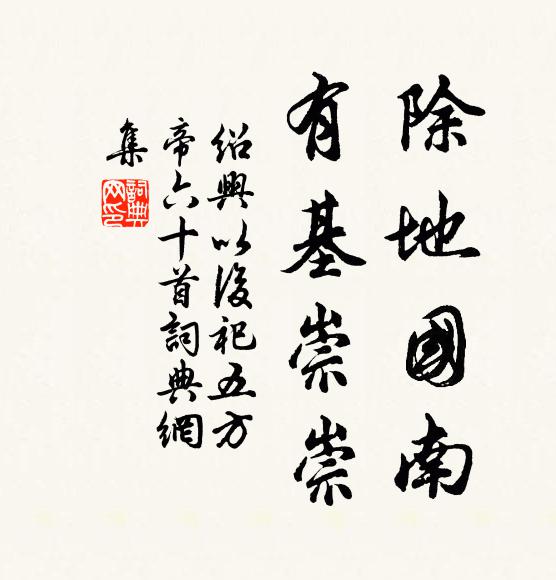 除地國南
有基崇崇
紹興以後祀五方
帝六十首詞典網
集
詞典
网印